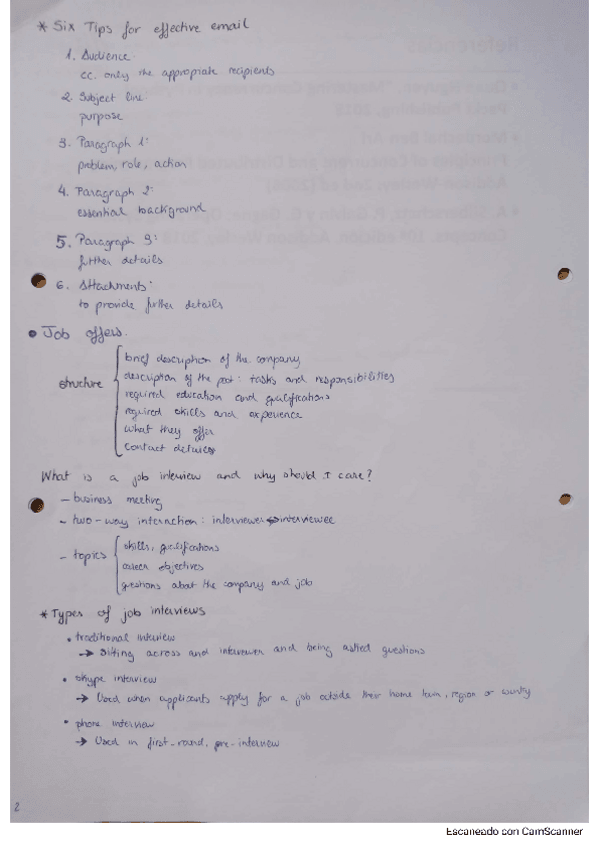 * Six Tips for effective email
1. Audience:
cc. only the appropiate recipients
2. Subject line:
purpose
3. Paragraph 1:
problem, role, action
4. Paragraph 2:
essential background
5. Paragraph 3:
further details
6. Attachments:
to provide further details
• Job offers.
structure
brief description of the company
description of the post: tasks and responsibilities
required education and qualifications
required skills and experience
what they offer
contact details
What is a job interview and why should I care?
- business meeting
- two-way interaction: interviewer ↔ interviewee
- topics
skills, qualifications
career objectives
questions about the company and job
* Types of job interviews
• traditional interview
→ Sitting across and interviewer and being asked questions
• skype interview
→ Used when applicants apply for a job outside their home town, region or country
• phone interview
→ Used in first-round, pre-interview
2
Escaneado con CamScanner